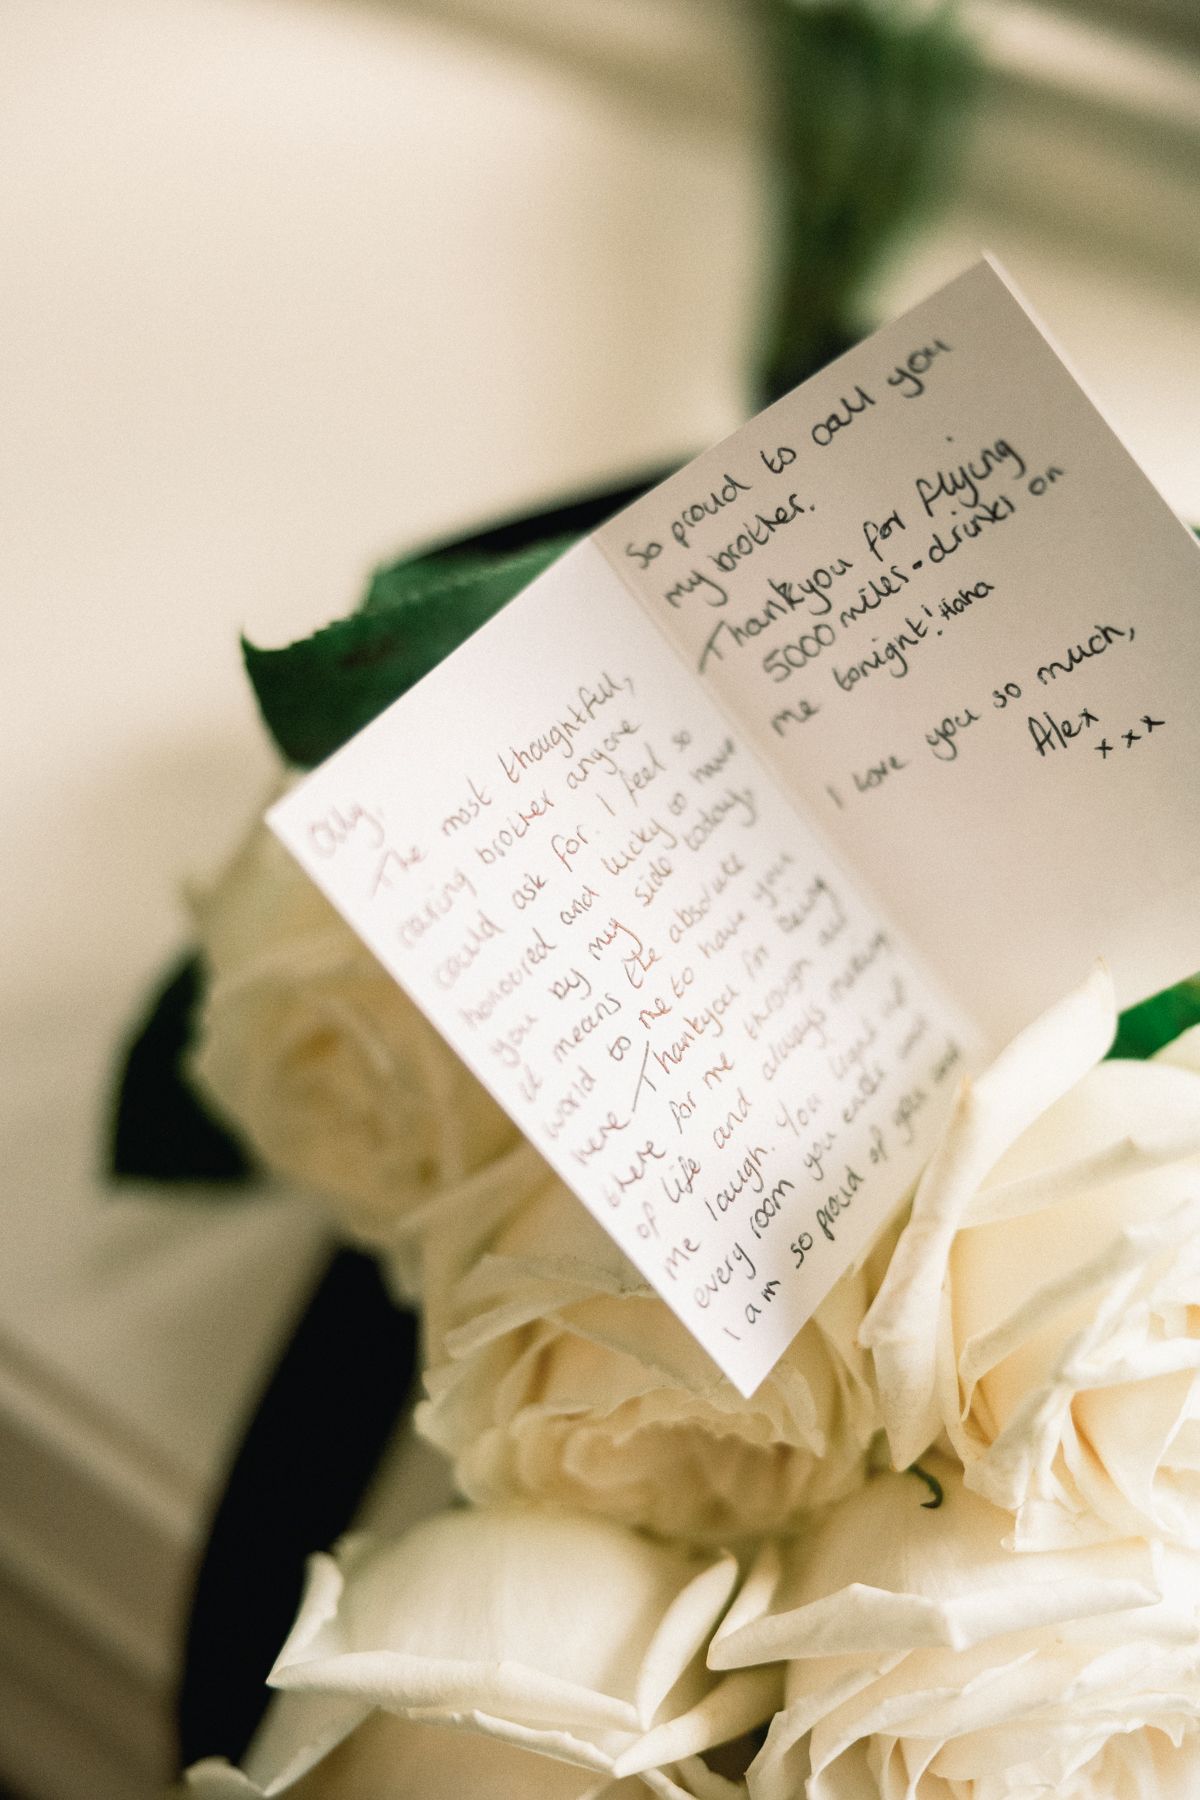 Olly,
The most thoughtful,
caring brother anyone
could ask for. I feel so
honoured and lucky to have
you by my side today,
it means the absolute
world to me to have you
here. Thankyou for being
there for me through all
of life and always making
me laugh. You light up
every room you enter and
I am so proud of you and
So proud to call you
my brother.
Thankyou for flying
5000 miles - drinks on
me tonight! Haha
I love you so much,
Alex
xxx